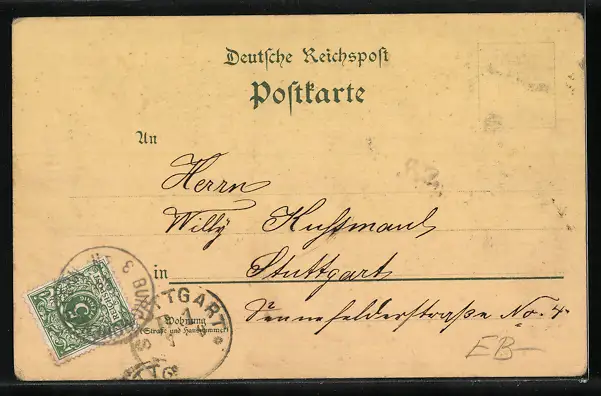 Deutsche Reichspost
Postkarte
An
Herrn
Willy Kussmaul
in Stuttgart
Wohnung
(Straße und Hausnummer)
Sennefelderstraße No. 4
STUTTGART
5
EB